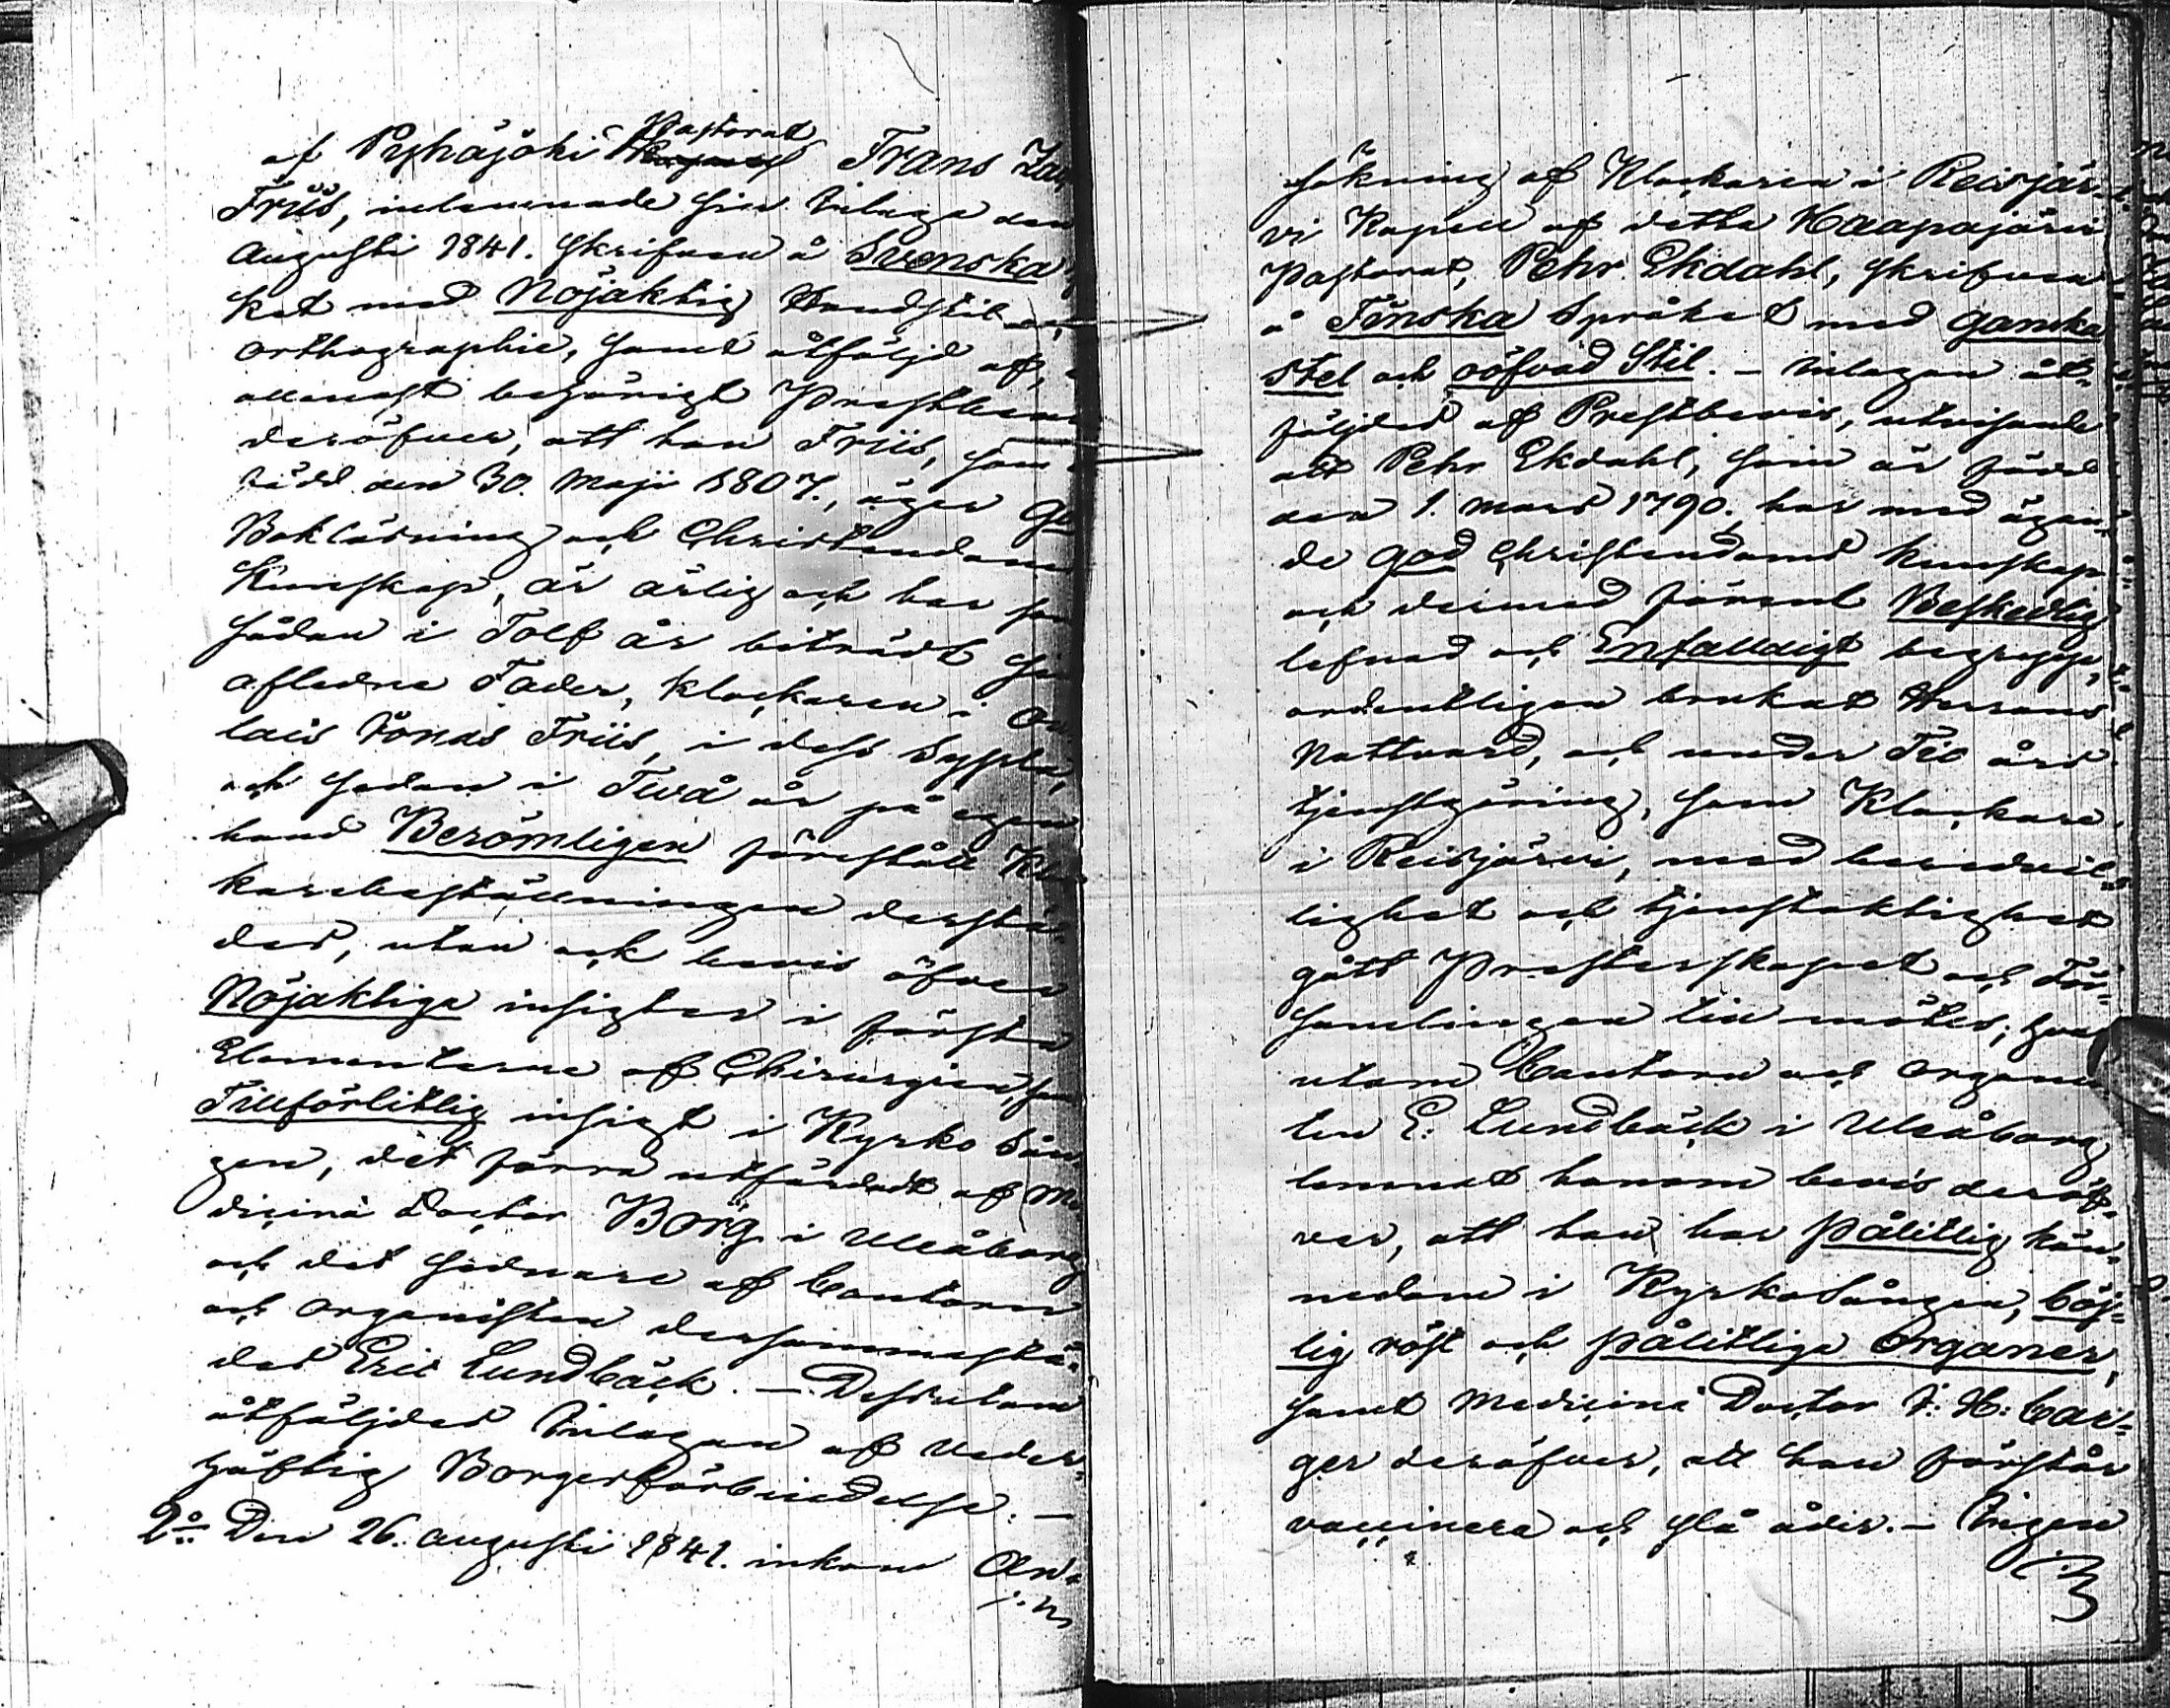 Pastorat
af Pyhäjöki Frans Za
Friis, inlemnade sin Inlaga den
Augusti 1841. skrifven å Svenska
ket med Nöjaktig Handstil
orthographie, samt åtföljd af,
allenast behörigt Prestbevis
deröfver, att han Friis, som
född den 30. Maji 1807., äger
Bokläsning och Christendoms
Kunskap, är ärlig och har
sådan i Tolf år biträdt
aflidne Fader, Klockaren i
lais Jonas Friis, i dess Syssla,
och sedan i Twå år på egen
hand Berömligen förestått
karebeställningen derstä-
des, utan ock bevis öfver
Nöjaktiga insigter i första
Elementerne af Chirurgien,
Tillförlitlig insigt i Kyrko Sån
gen, det förra utfärdadt af Me
dicinä Doctor Borg i Uleåborg
och det sednare af Cantorn
och Organisten dersammastä-
des Eric Lundbäck. — Dessutom
åtföljdes Inlagan af Veder-
häftig Borgesförbindelse. —
2:o Den 26. Augusti 1841. inkom An-
sökning af Klockaren i Reisjär-
vi Kapell af detta Haapajärvi
Pastorat, Pehr Ekdahl, skrifven
å Finska Språket med ganska
stel och oöfvad Stil. — Inlagan åt-
följdes af Prestbevis, utvisande
att Pehr Ekdahl, som är född
den 1. Mars 1790. har med ägan-
de god Christendoms kunskap
och dermed förent Beskedlig
lefnad och Enfalldigt begrepp,
ordentligen brukat Herrans
Nattvard, och under Tio års
tjenstgöring, som Klockare
i Reisjärvi, med beredvil-
lighet och tjenstaktighet
gått Presterskapet och För-
samlingen till mötes;
utom Cantorn och Organis
ten E: Lundbäck i Uleåborg
lemnat honom bevis deröf-
ver, att han har pålitlig kän-
nedom i Kyrkosången, böj-
lig röst och pålitliga Organer,
samt Medicinä Doctor J: H: Cai-
ger deröfver, att han förstår
vaccinera och slå åder. — Ingen